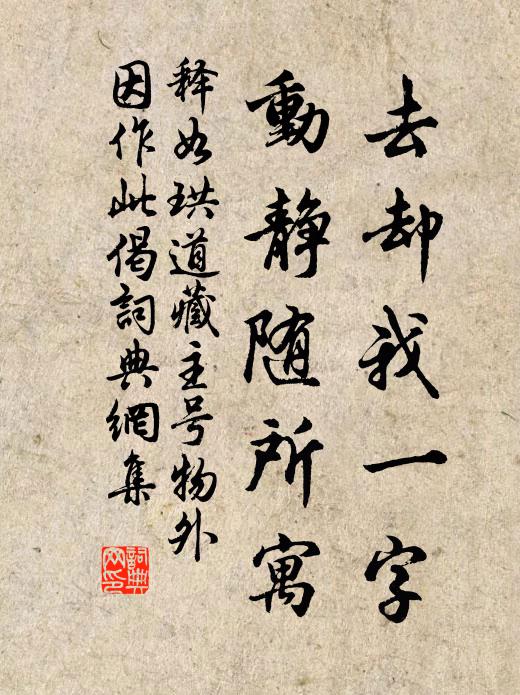 去却我一字
動静随所寓
释如珙道藏主号物外
因作此偈詞典網集
詞典网印